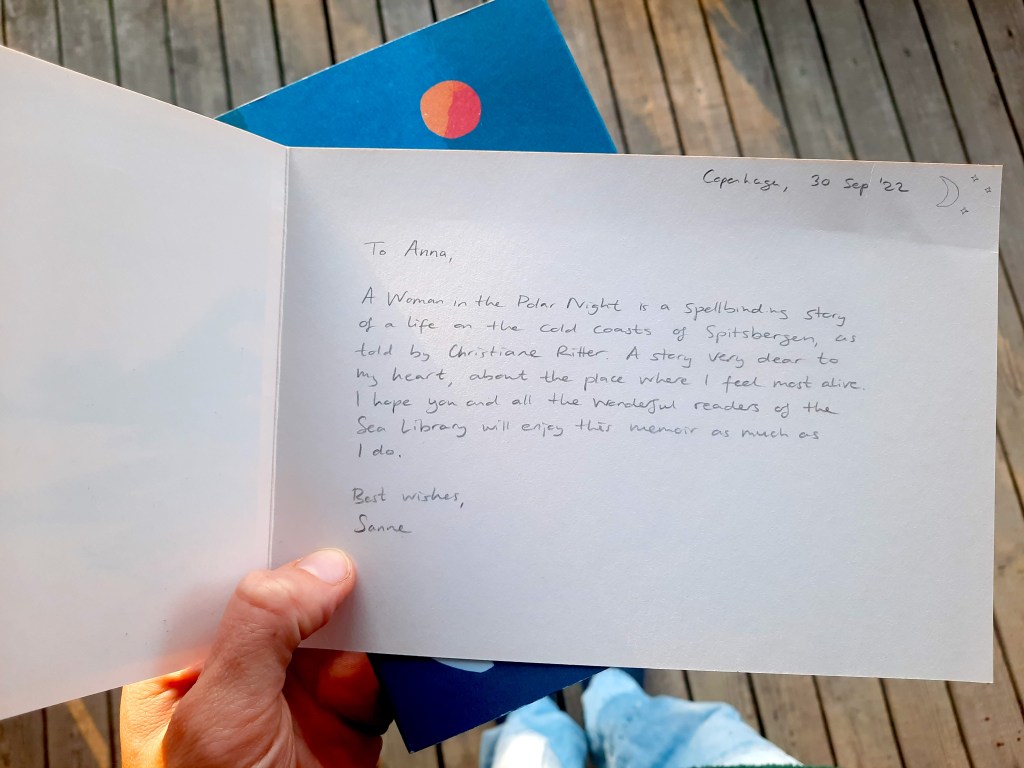 Copenhage, 30 Sep '22
To Anna,
A Woman in the Polar Night is a spellbinding story
of a life on the cold coasts of Spitsbergen, as
told by Christiane Ritter. A story very dear to
my heart, about the place where I feel most alive.
I hope you and all the wonderful readers of the
Sea Library will enjoy this memoir as much as
I do.
Best wishes,
Sanne